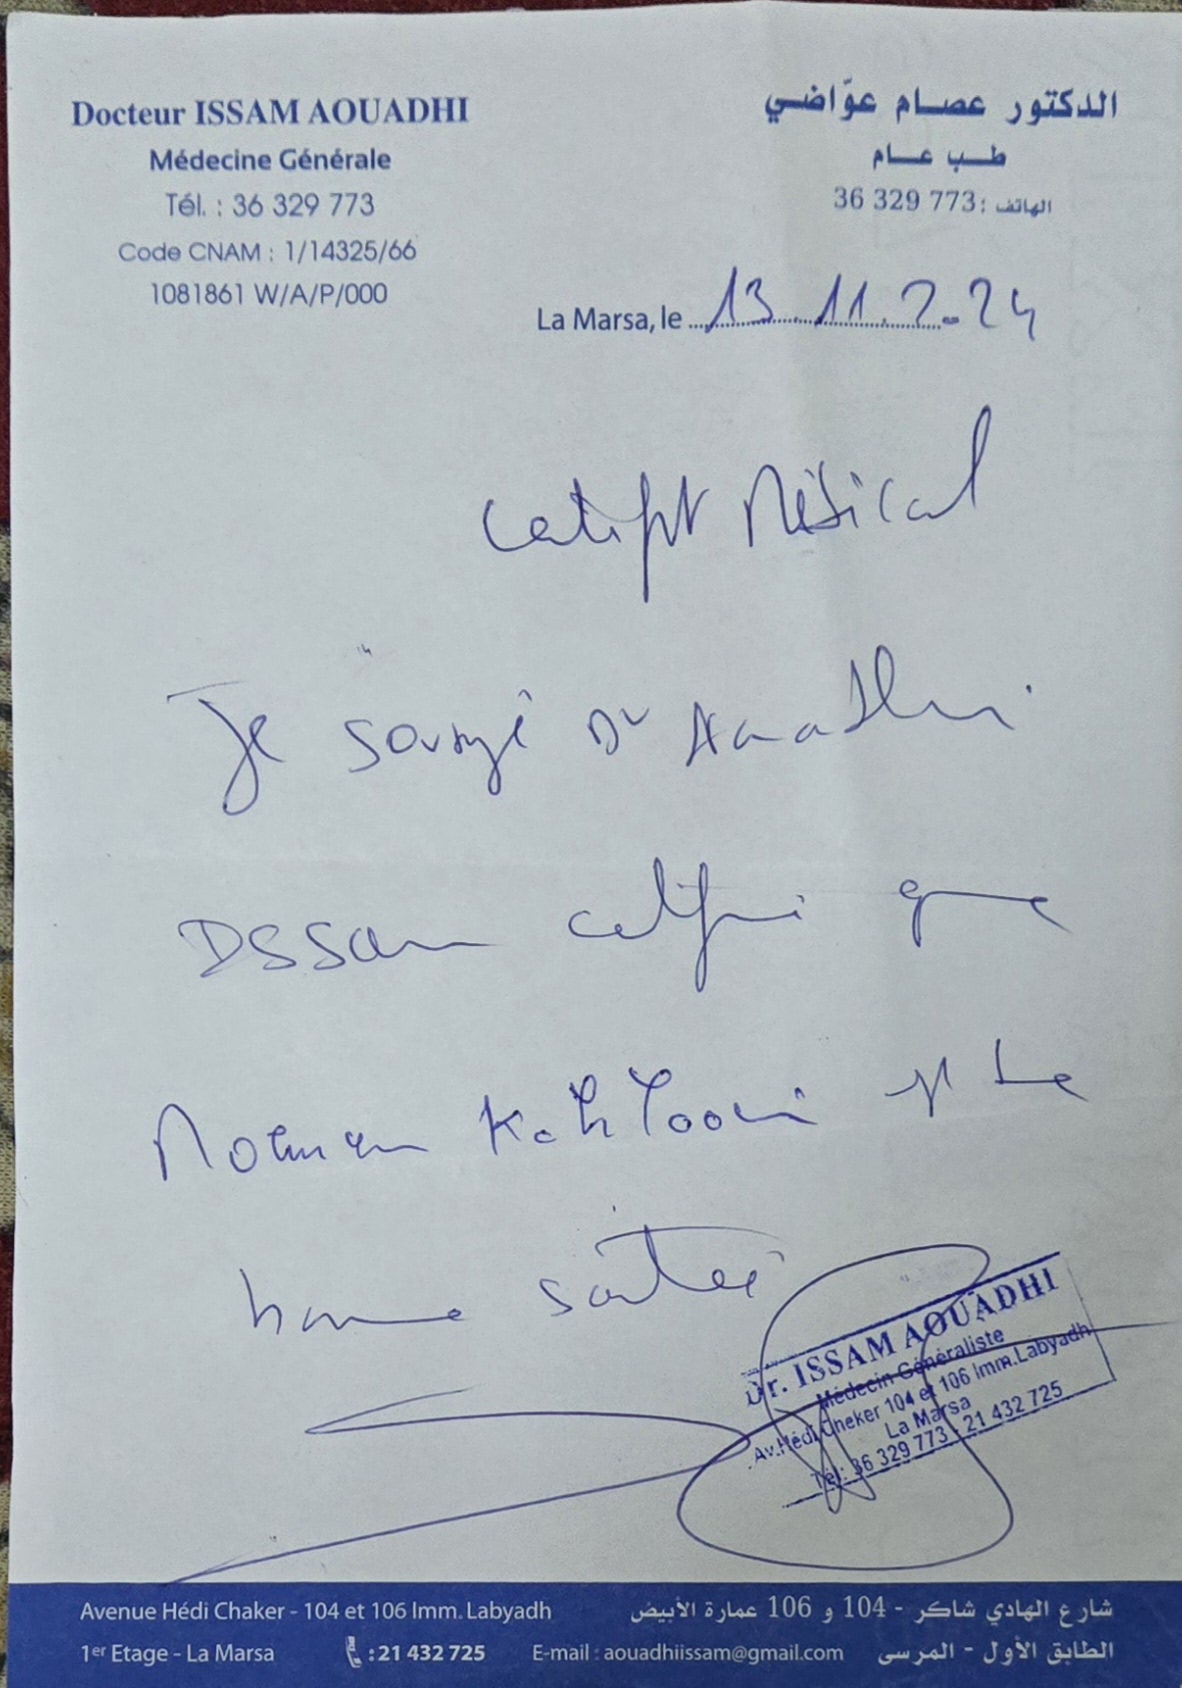 Docteur ISSAM AOUADHI
Médecine Générale
Tél. : 36 329 773
Code CNAM : 1/14325/66
1081861 W/A/P/000
الدكتور عصام عوّاضي
طب عام
الهاتف : 36 329 773
La Marsa, le 13.11.2024
Médical
Je Dr Aouadhi
Issam que
bonne santé
Dr. ISSAM AOUADHI
Médecin Généraliste
Av. Hédi Cheker 104 et 106 Imm. Labyadh
La Marsa
Tél: 36 329 773 - 21 432 725
Avenue Hédi Chaker - 104 et 106 Imm. Labyadh
1er Etage - La Marsa : 21 432 725 E-mail : aouadhiissam@gmail.com
شارع الهادي شاكر - 104 و 106 عمارة الأبيض
الطابق الأول - المرسى